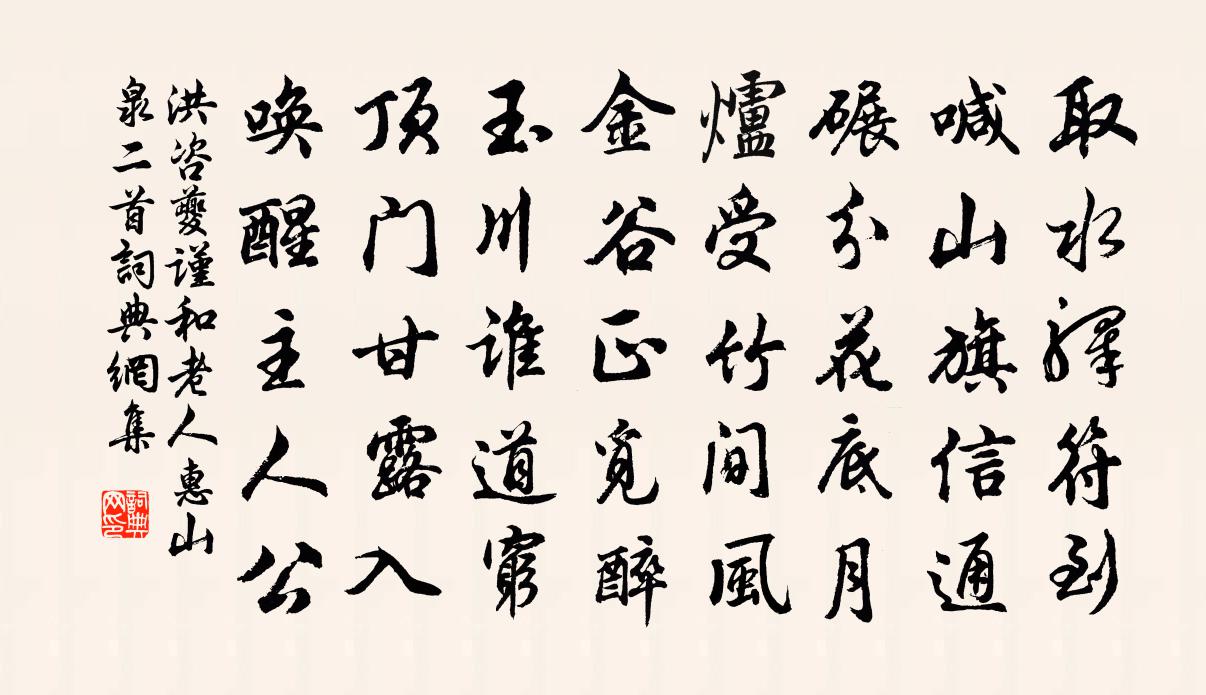 取水驛符到
喊山旗信通
碾分花底月
爐受竹間風
金谷正覓醉
玉川誰道窮
頂门甘露入
唤醒主人公
洪咨夔谨和老人惠山
泉二首詞典網集
詞典
网印